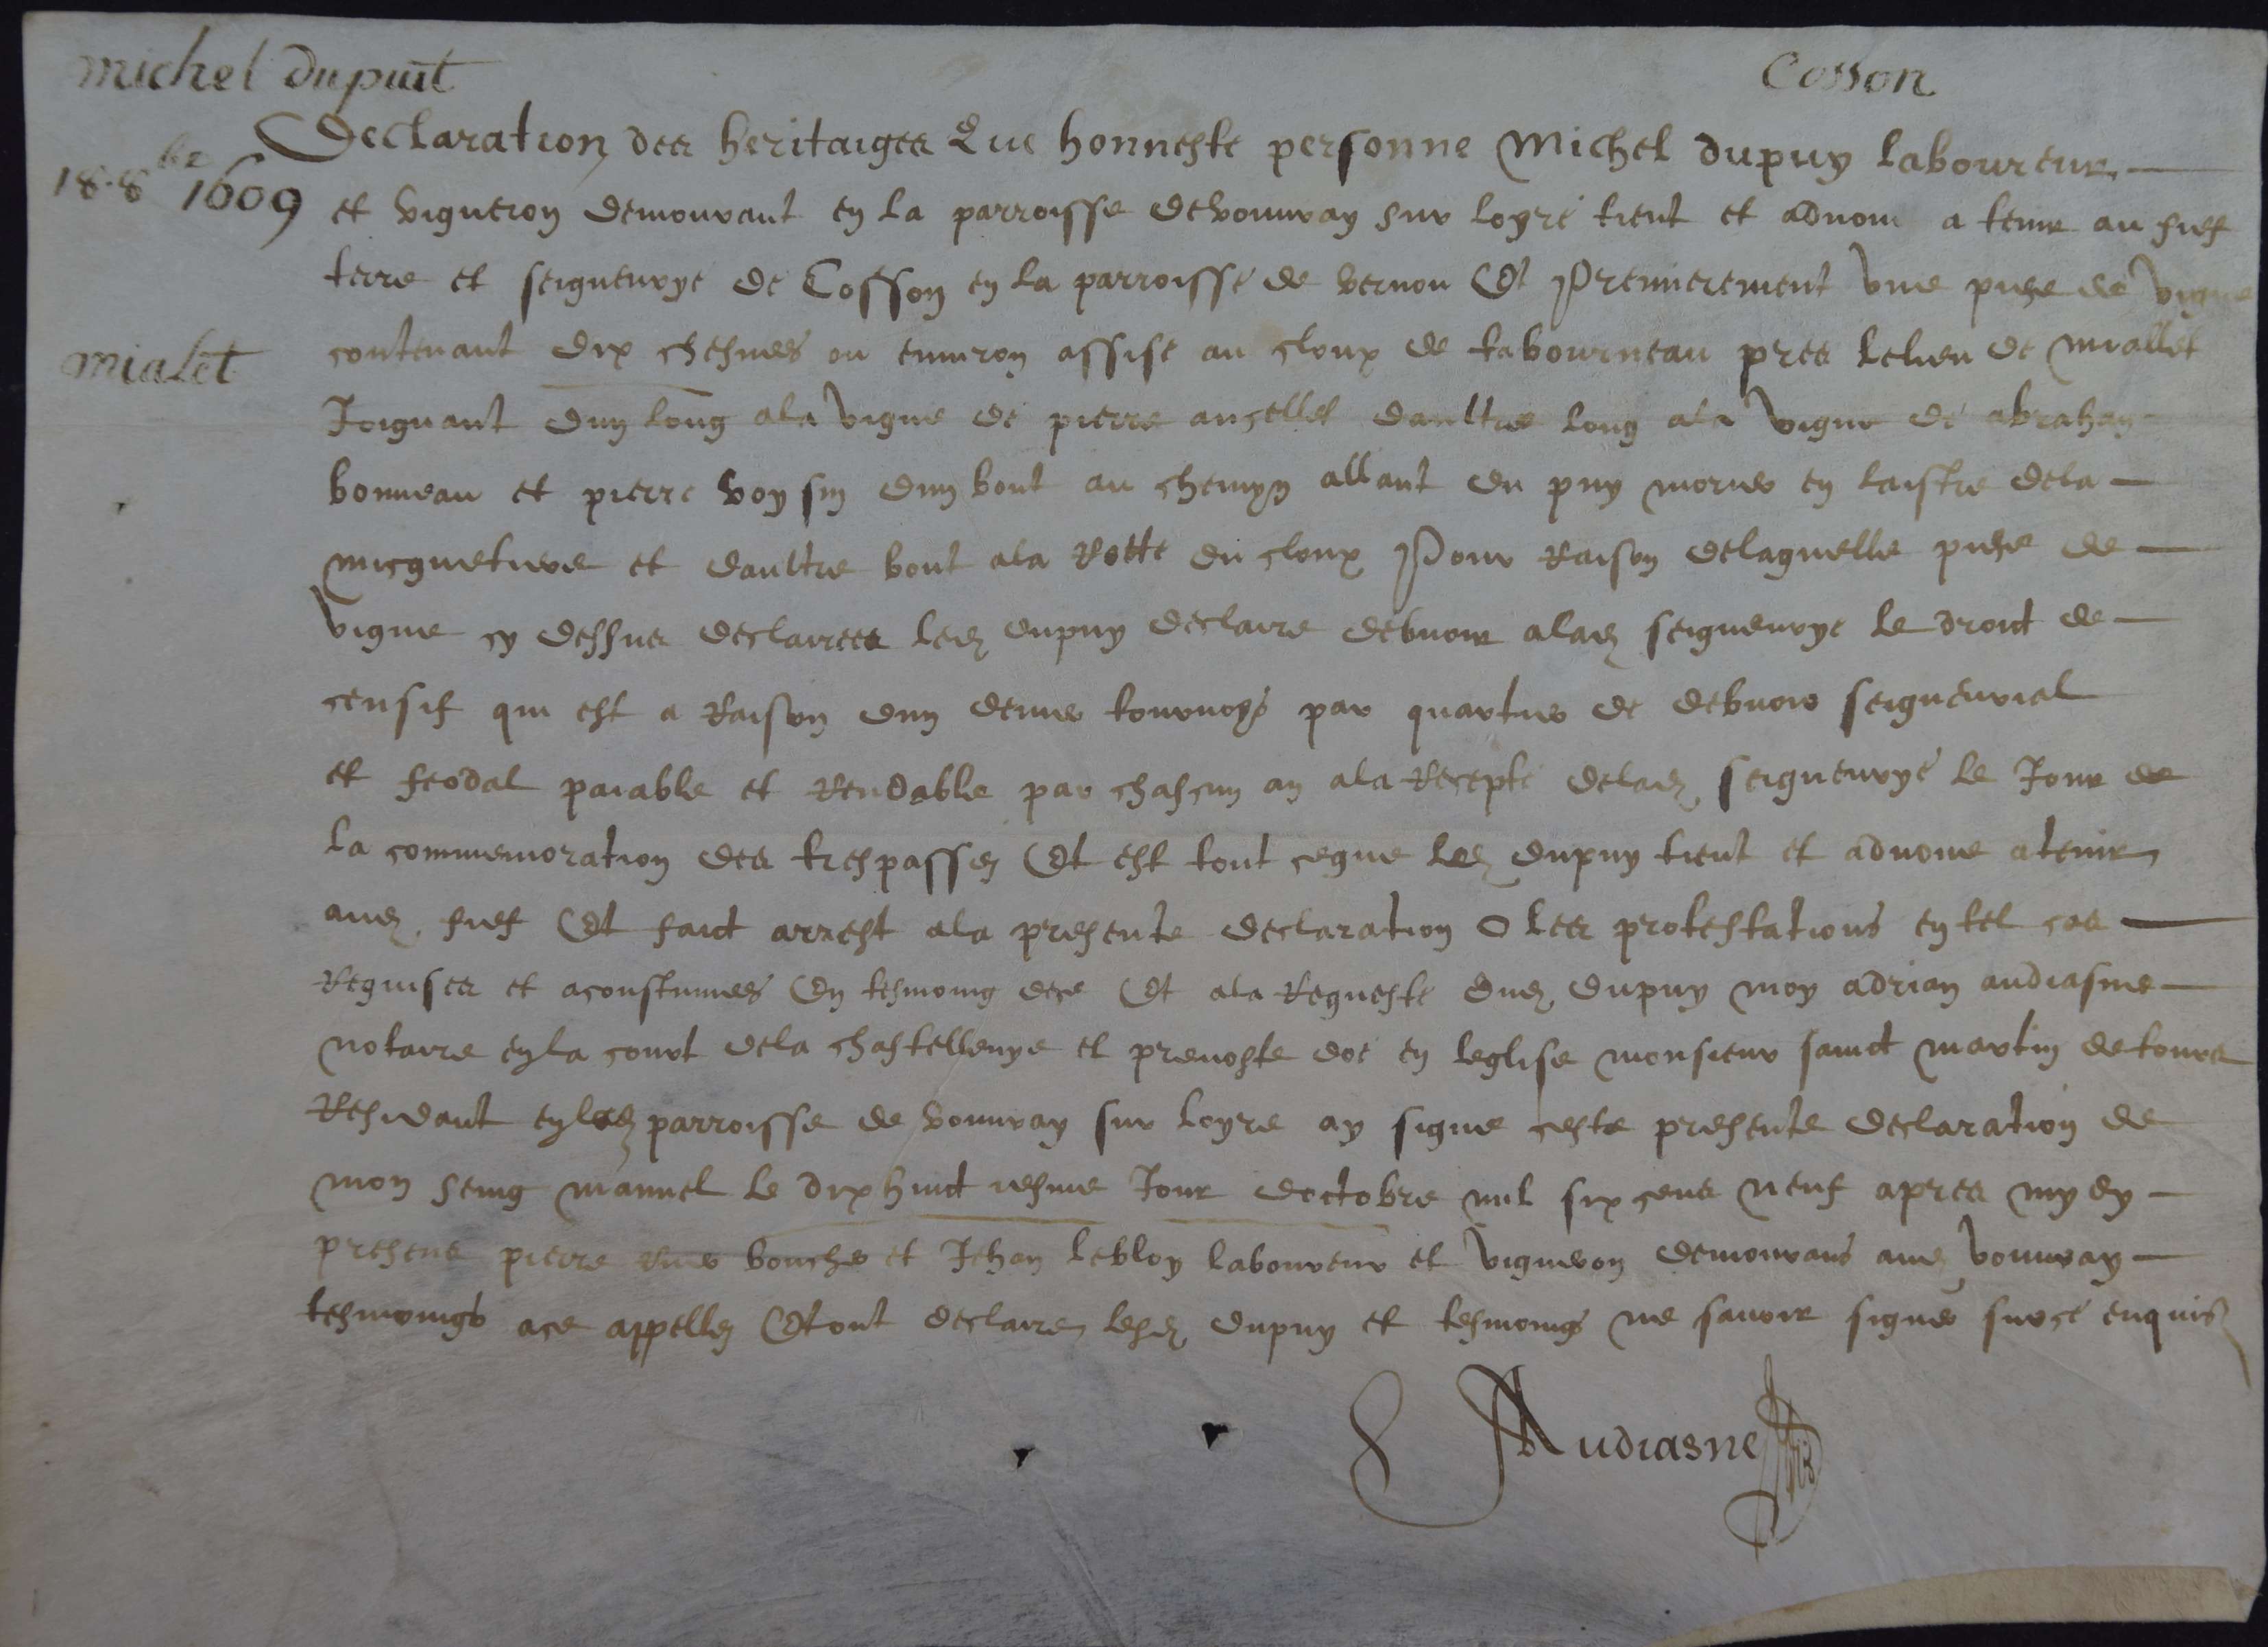 michel dupuit
Cosson
18. 8bre 1609
Declaration des heritaiges Que honneste personne Michel dupuy laboureur
et vigneron demourant en la parroisse de vouvray sur loyre tient et advoue a tenir au fief
terre et seigneurye de Cosson en la parroisse de vernou Et Premierement une piece de vigne
mialet
contenant dix chesnees ou environ assise au cloux de tabourneau pres le lieu de miallet
Joignant dun long a la vigne de pierre ancellet daultre long a la vigne de abrahan
bonneau et pierre voysin dun bout au chemyn allant du puy morier en laistre de la
micquetiere et daultre bout a la Rotte du cloux Pour Raison de laquelle piece de
vigne cy dessus declairees led dupuy declaire debvoir a lad seigneurye le droict de
censif qui est a Raison dun denier tournoys par quartier de debvoir seigneurial
et feodal paiable et Rendable par chascun an a la Recepte de lad seigneurye le Jour de
la commemoration des trespassez Et est tout ce que led dupuy tient et advoue a tenir
aud fief Et faict arrest a la presente declaration O les protestations en tel cas
Requises et acoustumees En tesmoing de ce Et a la Requeste dud dupuy moy adrian audiasne
notaire en la court de la chastellenye et prevoste doe en leglise monsieur sainct martin de tours
Residant en lad parroisse de vouvray sur loyre ay signe ceste presente declaration de
mon seing manuel le dixhuictiesme Jour doctobre mil six cens neuf apres mydy
presens pierre boucher et Jehan lebloy laboureur et vigneron demourans aud vouvray
tesmoings a ce appellez Et ont declaire lesd dupuy et tesmoings ne savoir signer sur ce enquis
Audiasne